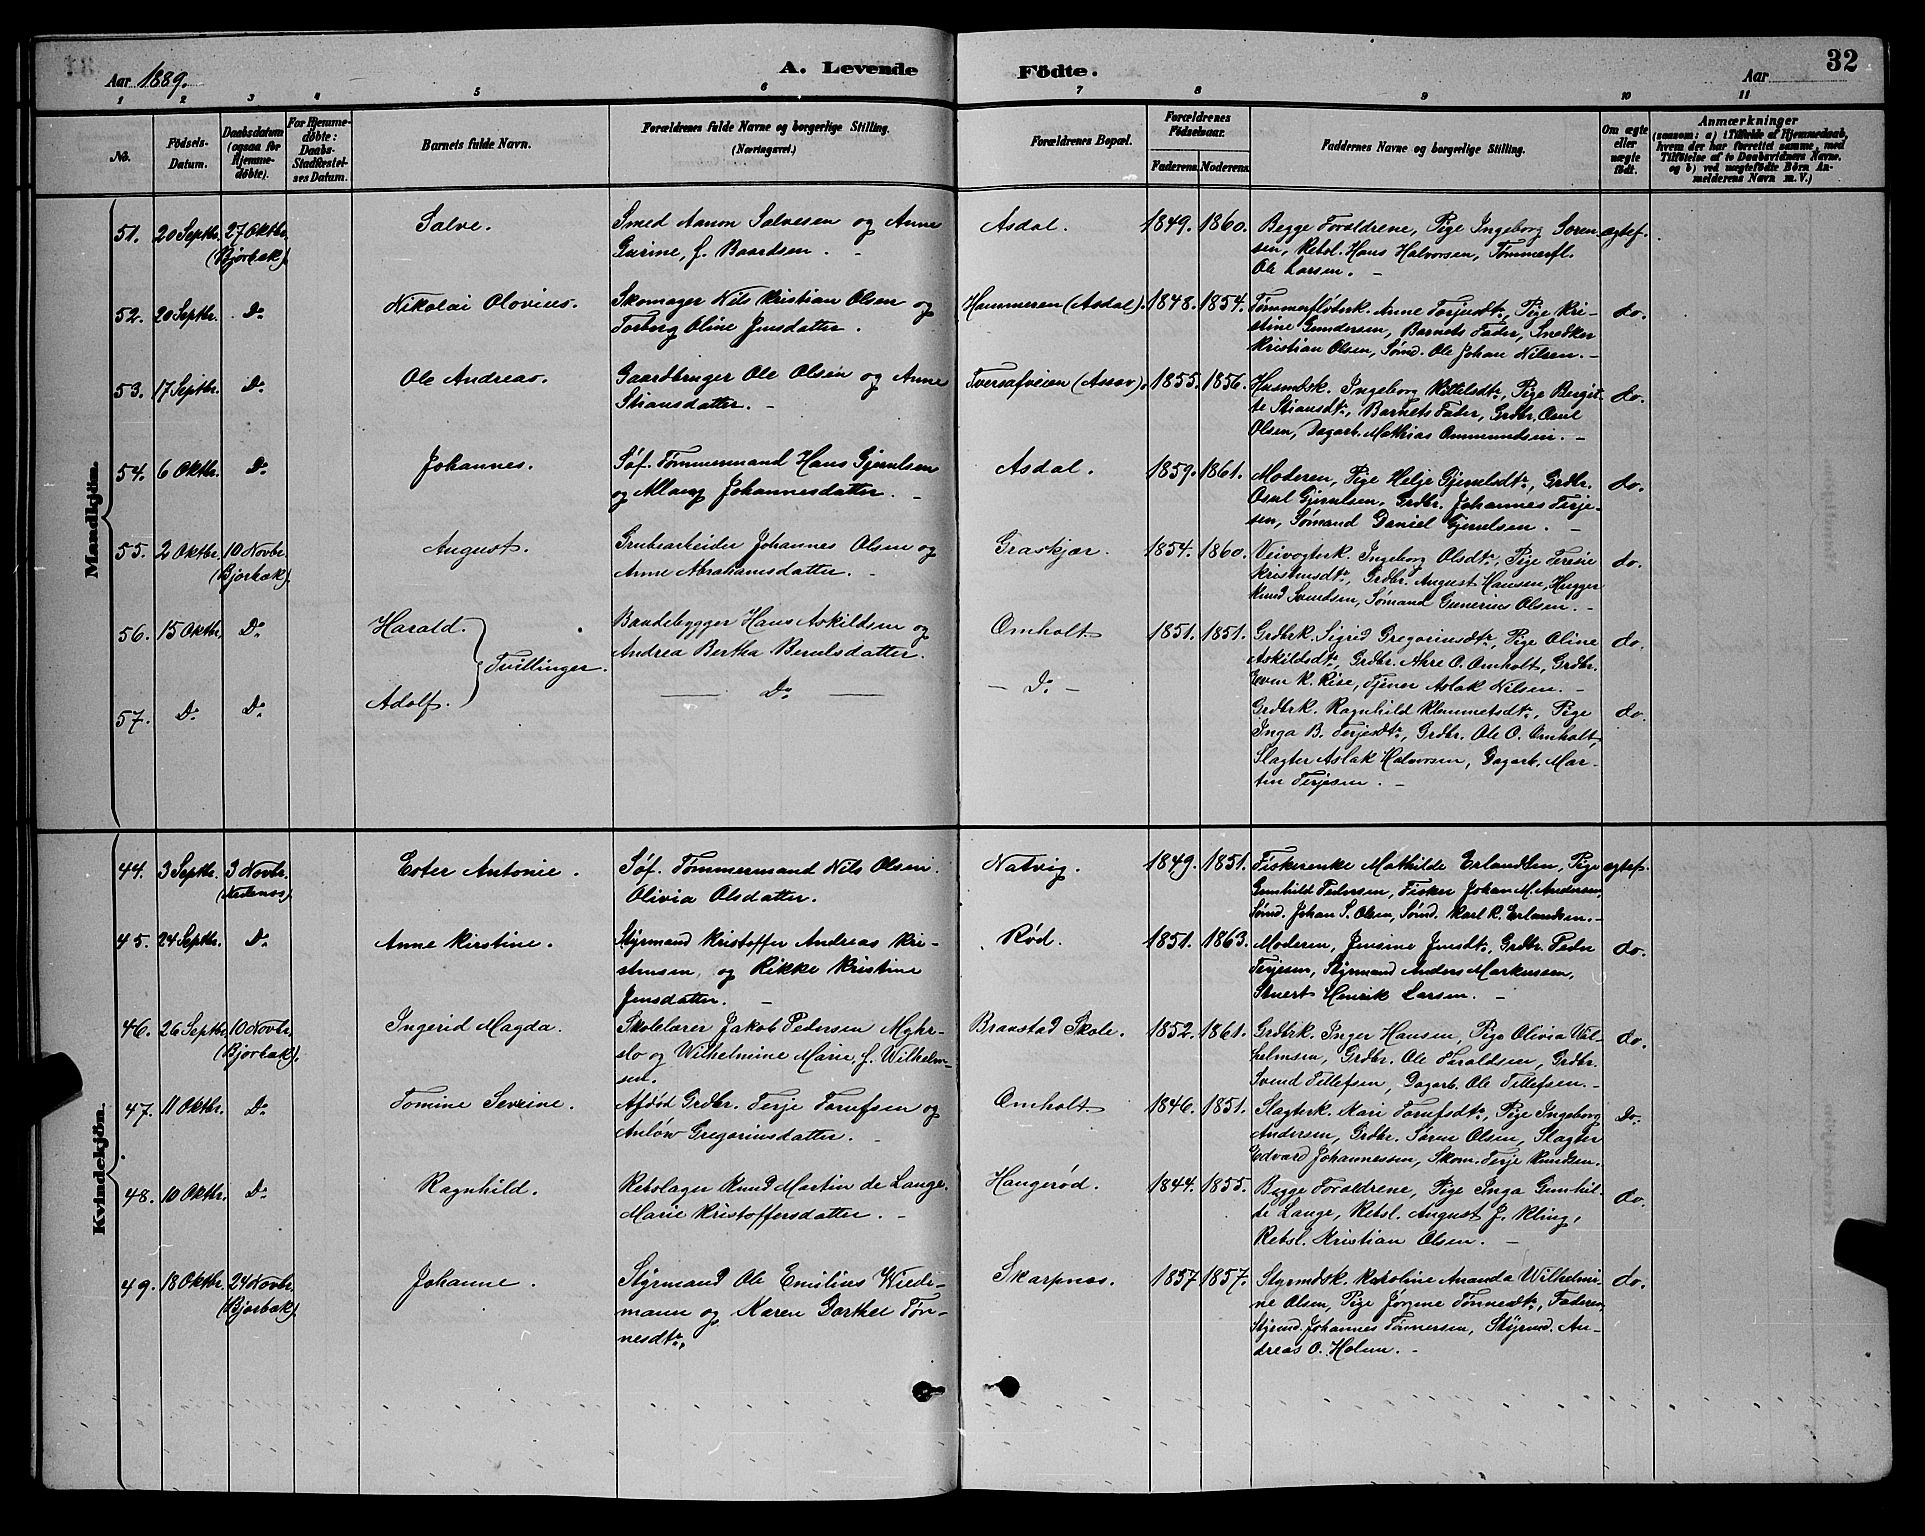 Aar 1889.
A. Levende Födte.
Aar
32
1 2 3 4 5 6 7 8 9 10 11
No.
Födsels-Datum.
Daabsdatum (ogsaa for Hjemmedöbte).
For Hjemmedöbte: Daabs-Stadfæstelses Datum.
Barnets fulde Navn.
Forældrenes fulde Navne og borgerlige Stilling.
(Nøriagavel.)
Forældrenes Bopæl.
Forældrenes Födselsaar.
Faderens. Moderens.
Faddernes Navne og borgerlige Stilling.
Om ægte eller uægte födt.
Anmærkninger
(saasom: a) i Tilfælde af Hjemmedaab, hvem der har forrettet samme, med Tilföielse af to Daabsvidners Navne, og b) ved uægtefödte Börn Anmelderens Navn m. V.)
Mandkjön.
51. 20 Septbr. 27 Oktbr. (Bjorbæk). Salve. Smed Aanon Salvesen og Anne
Gurine, f. Baardsen. Asdal. 1849. 1860. Begge Forældrene, Pige Ingeborg Soren-
sen, Rebsl. Hans Halvorsen, Tømmerfl.
Ole Larsen. ægtef.
52. 20 Septbr. Do Nikolai Olovius. Skomager Nils Kristian Olsen og
Torborg Oline Jensdatter. Hammeren (Asdal). 1848. 1854. Tømmerfløderk. Anne Torjusdtr, Pige Kri-
stine Gundersen, Barnets Fader, Snedker
Kristian Olsen, Sømd. Ole Johan Nilsen. do.
53. 17 Septbr. Do Ole Andreas. Gaardbruger Ole Olsen og Anne
Stiansdatter. Tversafveien (Assev). 1855. 1856. Husmdsk. Ingeborg Kittelsdtr, Pige Bergit-
te Stiansdtr, Barnets Fader, Grdbr. Osul
Olsen, Dagarb. Mathias Ommundsen. do.
54. 6 Oktbr. Do Johannes. Søf. Tømmermand Hans Gjerulsen
og Aslaug Johannesdatter. Asdal. 1859. 1861. Moderen, Pige Helje Gjerulsdtr, Grdbr.
Osul Gjerulsen, Grdbr. Johannes Terje-
sen, Sømand Daniel Gjerulsen. do.
55. 2 Oktbr. 10 Novbr. (Bjorbæk). August. Grubearbeider Johannes Olsen og
Anne Abrahamsdatter. Graskjær. 1854. 1860. Veivogterk. Ingeborg Olsdtr, Pige Terese
Kristensdtr, Grdbr. August Hansen, Hugger
Knud Svendsen, Sømand Gunerius Olsen. do.
56. 15 Oktbr. Do Harald. Tvillinger. Baadebygger Hans Askildsen og
Andrea Bertha Berulsdatter. Omholt 1851. 1851. Grdbrk. Sigrid Gregoriusdtr, Pige Oline
Askildsdtr, Grdbr. Ahre O. Omholt, Grdbr.
Even K. Rise, Tjener Aslak Nilsen. do.
57. Do Do Adolf. Do Do Grdbrk. Ragnhild Klemmetsdtr, Pige
Inga B. Terjesdtr, Grdbr. Ole O. Omholt,
Slagter Aslak Halvorsen, Dagarb. Mar-
tin Terjesen. do.
Kvindekjön.
44. 3 Septbr. 3 Novbr. (Nedenæs). Ester Antonie. Søf. Tømmermand Nils Olsen.
Olivia Olsdatter. Natvig. 1849. 1851. Fiskerenke Mathilde Erlandsen, Pige
Gunhild Pedersen, Fisker Johan M. Andersen,
Sømd. Johan S. Olsen, Sømd. Karl R. Erlandsen. ægtef.
45. 24 Septbr. Do Anne Kirstine. Styrmand Kristoffer Andreas Kri-
stensen og Rikke Kristine
Jensdatter. Rød. 1851. 1863. Moderen, Jensine Jensdtr, Grdbr. Peder
Terjesen, Styrmand Anders Markussen,
Stuert Henrik Larsen. do.
46. 26 Septbr. 10 Novbr. (Bjorbæk). Ingerid Magda. Skolelærer Jakob Pedersen Myhr-
slo og Wilhelmine Marie, f. Wilhelm-
sen. Branstad Skole. 1852. 1861. Grdbrk. Inger Hansen, Pige Olivia Wil-
helmsen, Grdbr. Ole Haraldsen, Grdbr.
Svend Tellefsen, Dagarb. Ole Tellefsen. do.
47. 11 Oktbr. Do Tomine Severine. Afdød Grdbr. Terje Torufsen og
Anlów Gregoriusdatter. Omholt 1846. 1851. Slagterk. Kari Torufsdtr, Pige Ingeborg
Andersen, Grdbr. Søren Olsen, Slagter
Edvard Johannessen, Skom. Terje Knudsen. Do.
48. 10 Oktbr. Do Ragnhild. Rebslager Knud Martin de Lange.
Marie Kristoffersdatter. Haugerød. 1844. 1855. Begge Forældrene, Pige Inga Gunhil-
de Lange, Rebsl. August J. Kling,
Rebsl. Kristian Olsen. do.
49. 18 Oktbr. 24 Novbr. (Bjorbæk). Johanne. Styrmand Ole Emilius Wiede-
mann og Karen Dorthea Tøn-
nesdtr. Skarpnæs. 1857 1857. Styrmdsk. Karoline Amanda Wilhelmi-
ne Olsen, Pige Jørgine Tønnesdtr, Faderen,
Styrmd. Johannes Tønnesen, Styrmd. An-
dreas O. Holm. do.